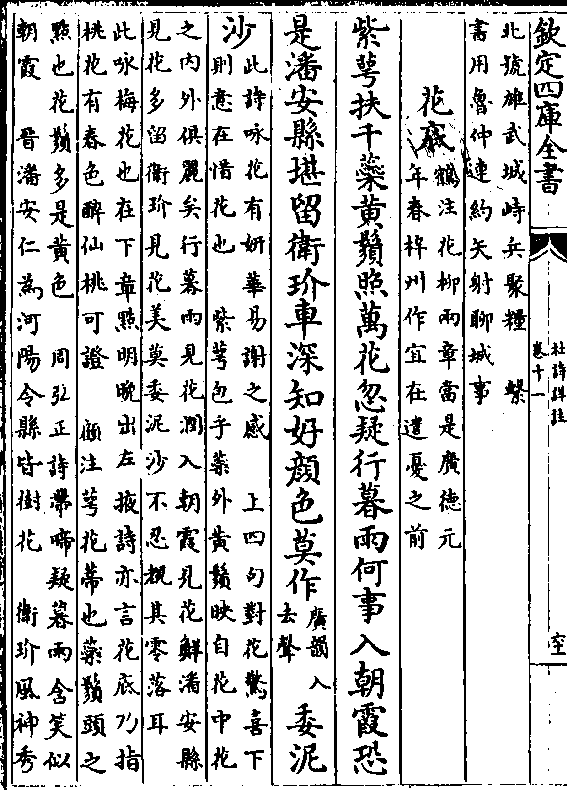 欽定四庫全書
杜詩詳註
卷十一
北號雄武城峙兵聚糧 繫
書用魯仲連約矢射聊城事
花底
鶴注花柳兩章當是廣德元
年春梓州作宜在遣憂之前
紫萼扶千蘂黄鬚照萬花忽疑行暮雨何事入朝霞恐
是潘安縣堪留衛玠車深知好顔色莫作
廣韻入
去聲
委泥
沙
此詩咏花有妍華易謝之感 上四句對花驚喜下
則意在惜花也 紫萼包乎蘂外黄鬚映自花中花
之内外俱麗矣行暮雨見花潤入朝霞見花鮮潘安縣
見花多留衛玠見花美莫委泥沙不忍概其零落耳
此咏梅花也在下章㸃明晩出左掖詩亦言花底乃指
桃花有春色醉仙桃可證 顧注萼花蒂也蘂鬚頭之
㸃也花鬚多是黄色 周弘正詩帶啼疑暮雨含笑似
朝霞 晉潘安仁為河陽令縣皆樹花 衛玠風神秀